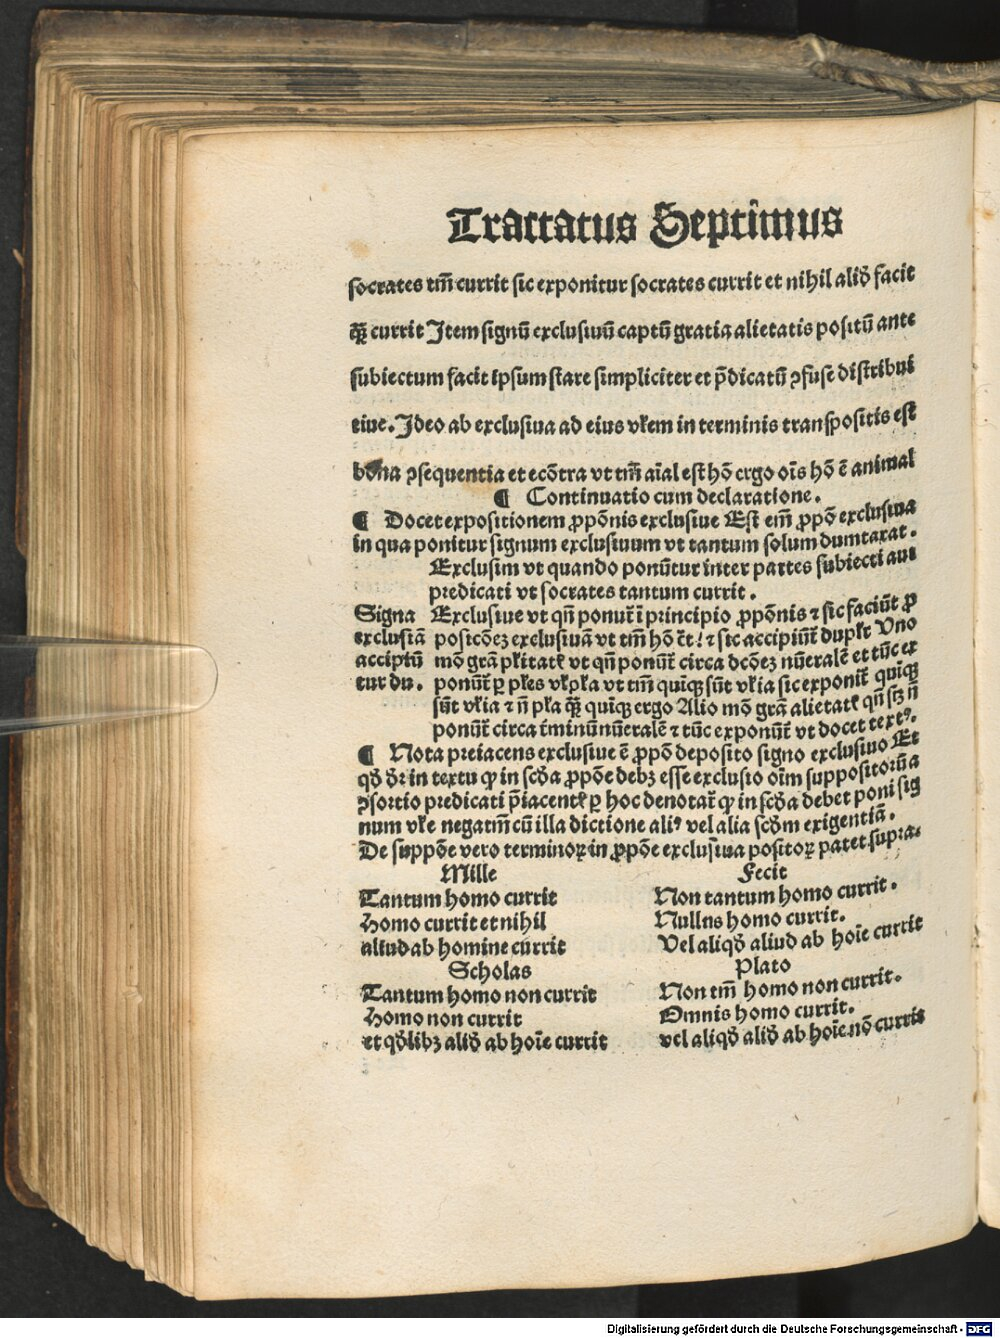 Tractatus Septimus
socrates tm̄ currit sic exponitur socrates currit et nihil aliđ facit
q̄ȝ currit Item signū exclusiuū captū gratia alietatis positū ante
subiectum facit ipsum stare simpliciter et p̄dicatū ꝯfuse distribui
tiue. Ideo ab exclusiua ad eius vƚem in terminis transpositis est
bona ꝯsequentia et ecōtra vt tm̄ aīal est hō ergo oīs hō ē animal
¶ Continuatio cum declaratione.
¶ Docet expositionem ꝓpōnis exclusiue Est em̄ ꝓpō exclusiua
in qua ponitur signum exclusiuum vt tantum solum dumtaxat.
Exclusim vt quando ponūtur inter partes subiecti aut
predicati vt socrates tantum currit.
Signa Exclusiue vt qn̄ ponur̄ ī principio ꝓpōnis ⁊ sic faciūt ꝓ
exclusiā posicōeȝ exclusiuā vt tm̄ hō c̄t! ⁊ sic accipiūt̄ dupƚr Uno
accipiū mō grā pƚitatꝭ vt qn̄ ponūt̄ circa dcōeȝ nūeralē et tūc ex
tur du. ponūt̄ ꝑ pƚes vƚ pƚa vt tm̄ quīqꝫ sūt vƚia sic exponit̄ quīqꝫ
sūt vƚia ⁊ n̄ pƚa q̄ȝ quīqꝫ ergo Alio mō grā alietatꝭ qn̄ sꝫ n̄
ponūt̄ circa t̄minū nūeralē ⁊ tūc exponūt̄ vt docet textꝰ.
¶ Nota preiacens exclusiue ē ꝓpō deposito signo exclusiuo Et
qđ đr in textu ꝙ in scđa ꝓpōe debȝ esse exclusio oīm suppositorū a
ꝯsortio predicati p̄iacentꝭ ꝑ hoc denotat̄ ꝙ in scđa debet poni sig
num vƚe negatm̄ cū illa dictione aliꝰ vel alia scđm exigentiā.
De suppōe vero terminoꝝ in ꝓpōe exclusiua positoꝝ patet supra.
Mille Fecit
Tantum homo currit Non tantum homo currit.
Homo currit et nihil Nullus homo currit.
aliud ab homine currit Vel aliqđ aliud ab hoīe currit
Scholas Plato
Tantum homo non currit Non tm̄ homo non currit.
Homo non currit Omnis homo currit.
et qđlibȝ aliđ ab hoīe currit vel aliqđ aliđ ab hoīe nō currit
Digitalisierung gefördert durch die Deutsche Forschungsgemeinschaft - DFG